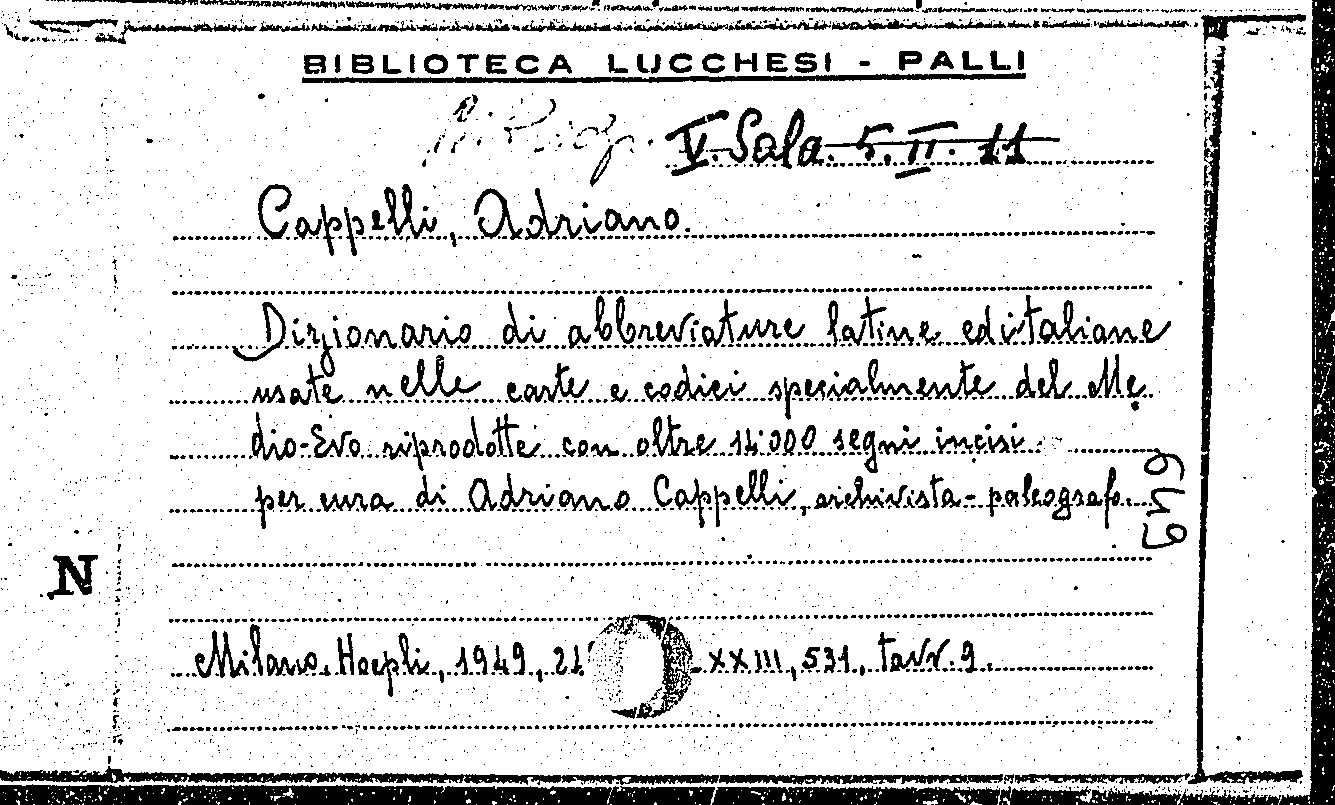 BIBLIOTECA LUCCHESI - PALLI
V. Sala. 5. II. 11
Cappelli, Adriano.
Dizionario di abbreviature latine ed italiane
usate nelle carte e codici specialmente del Me
dio-Evo riprodotte con oltre 14000 segni incisi
per cura di Adriano Cappelli, archivista-paleografo.
649
N
Milano. Hoepli, 1949, XXIII, 531, tavv. 9.